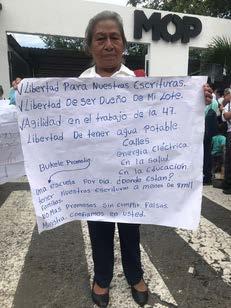 MOP
√ Libertad Para Nuestras Escrituras.
√ Libertad De Ser Dueño De Mi Lote.
√ Agilidad en el trabajo de la 47.
Libertad De tener agua Potable
Calles
energia Eléctrica
En la salud
En la Educación
Bukele Prometio
Una escuela Por Dia, donde Estan?
tener Nuestras escrituras a menos de 8 mil
Familias.
No Mas Promesas Sin Cumplir Falsas
Ministra confiamos en usted.